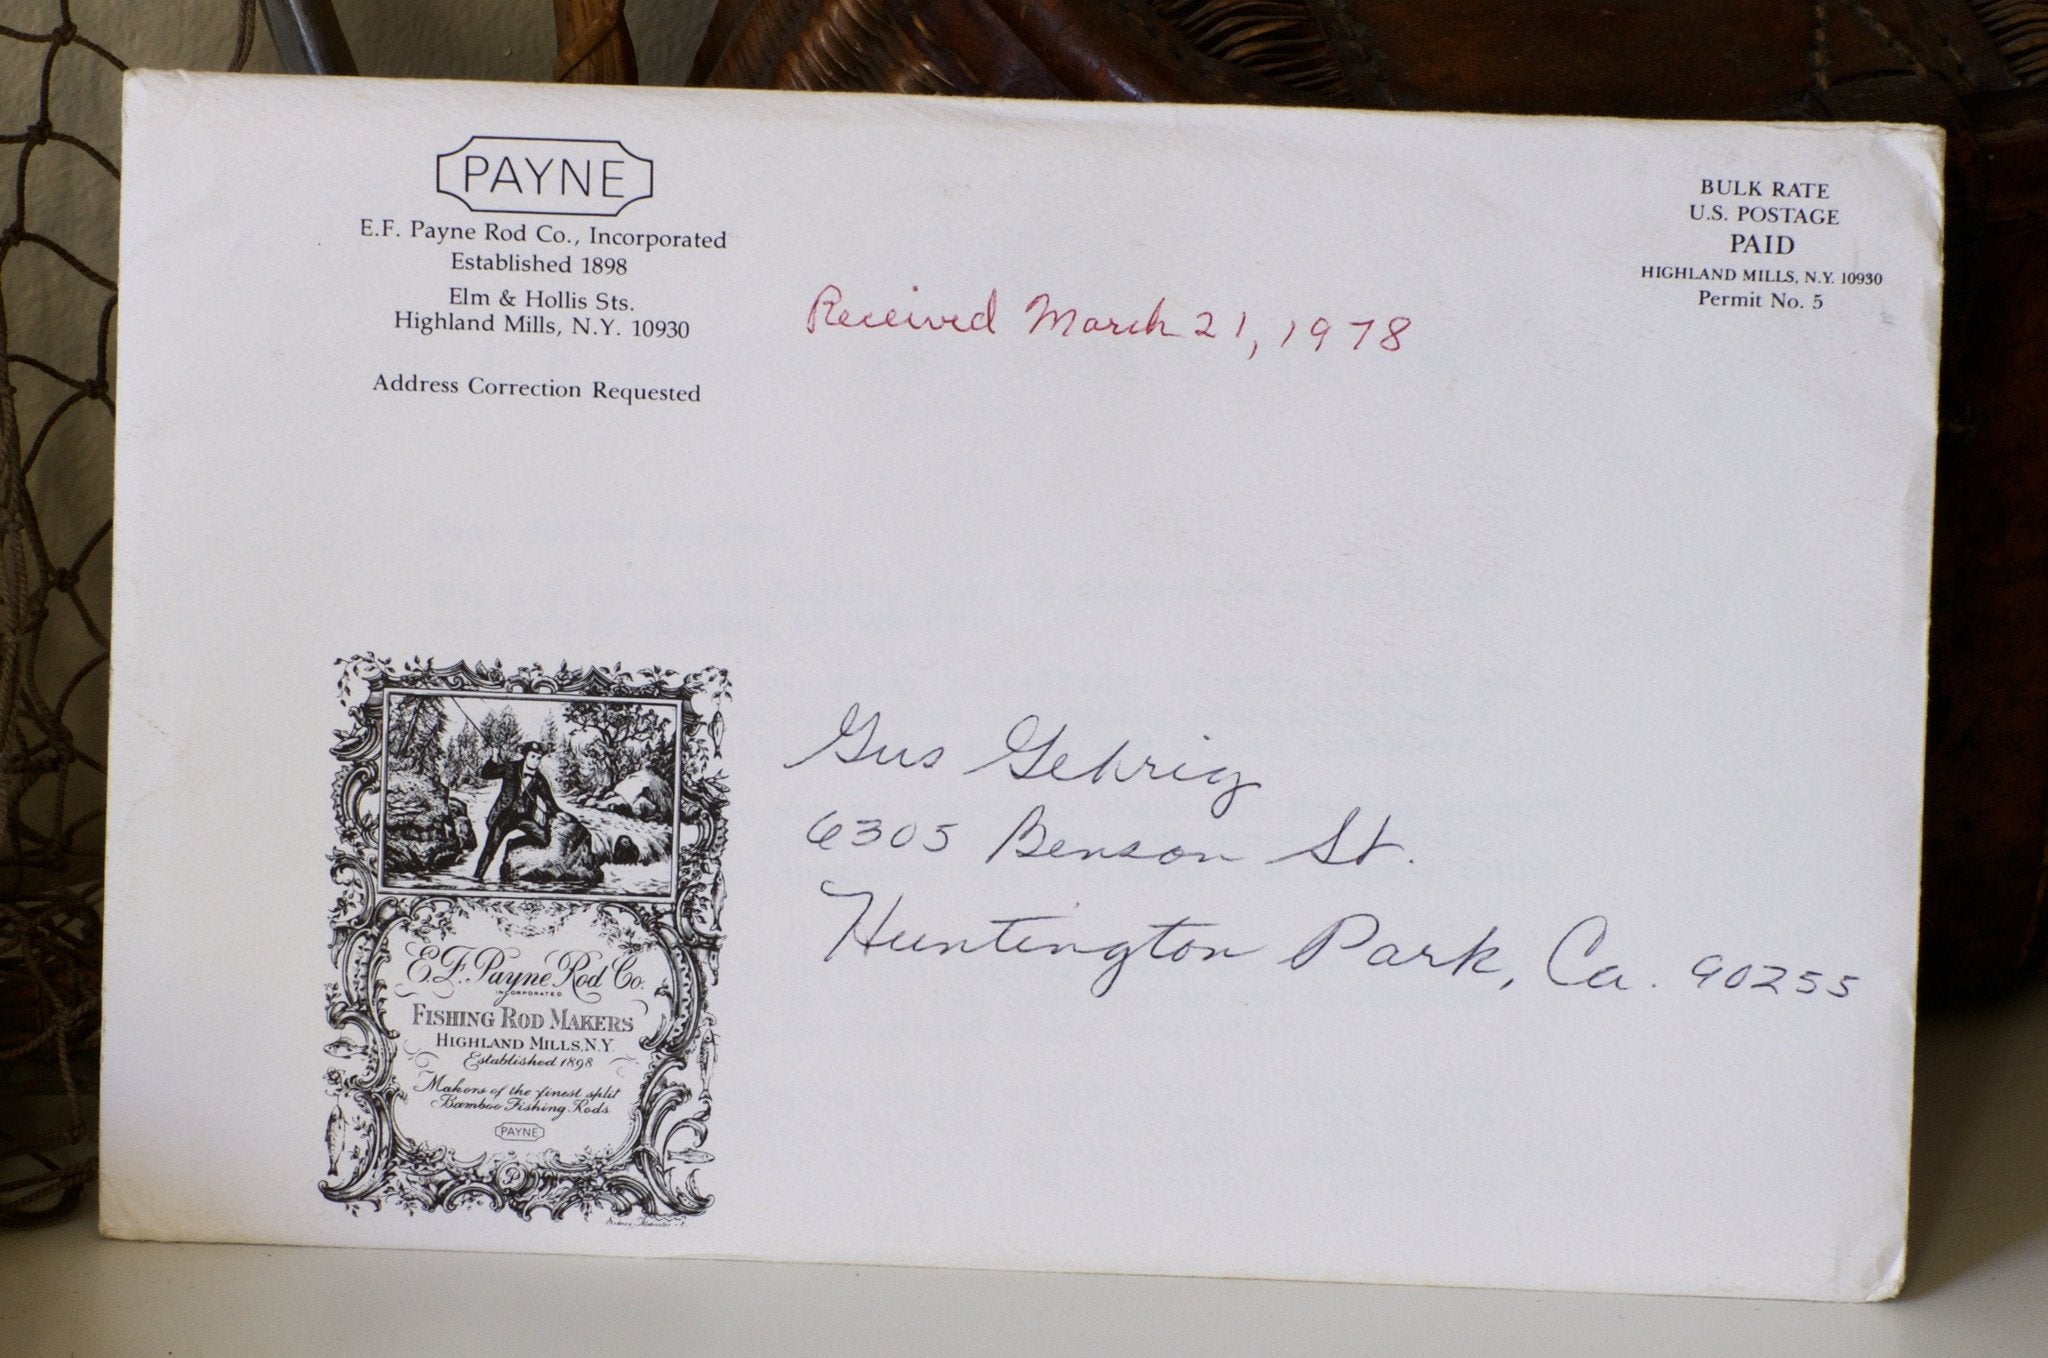 PAYNE
E.F. Payne Rod Co., Incorporated
Established 1898
Elm & Hollis Sts.
Highland Mills, N.Y. 10930
Address Correction Requested
BULK RATE
U.S. POSTAGE
PAID
HIGHLAND MILLS, N.Y. 10930
Permit No. 5
Received March 21, 1978
Gus Gehrig
6305 Benson St.
Huntington Park, Ca. 90255
E.F. Payne Rod Co.
INCORPORATED
FISHING ROD MAKERS
HIGHLAND MILLS, N.Y.
Established 1898
Makers of the finest split
Bamboo Fishing Rods
PAYNE
P